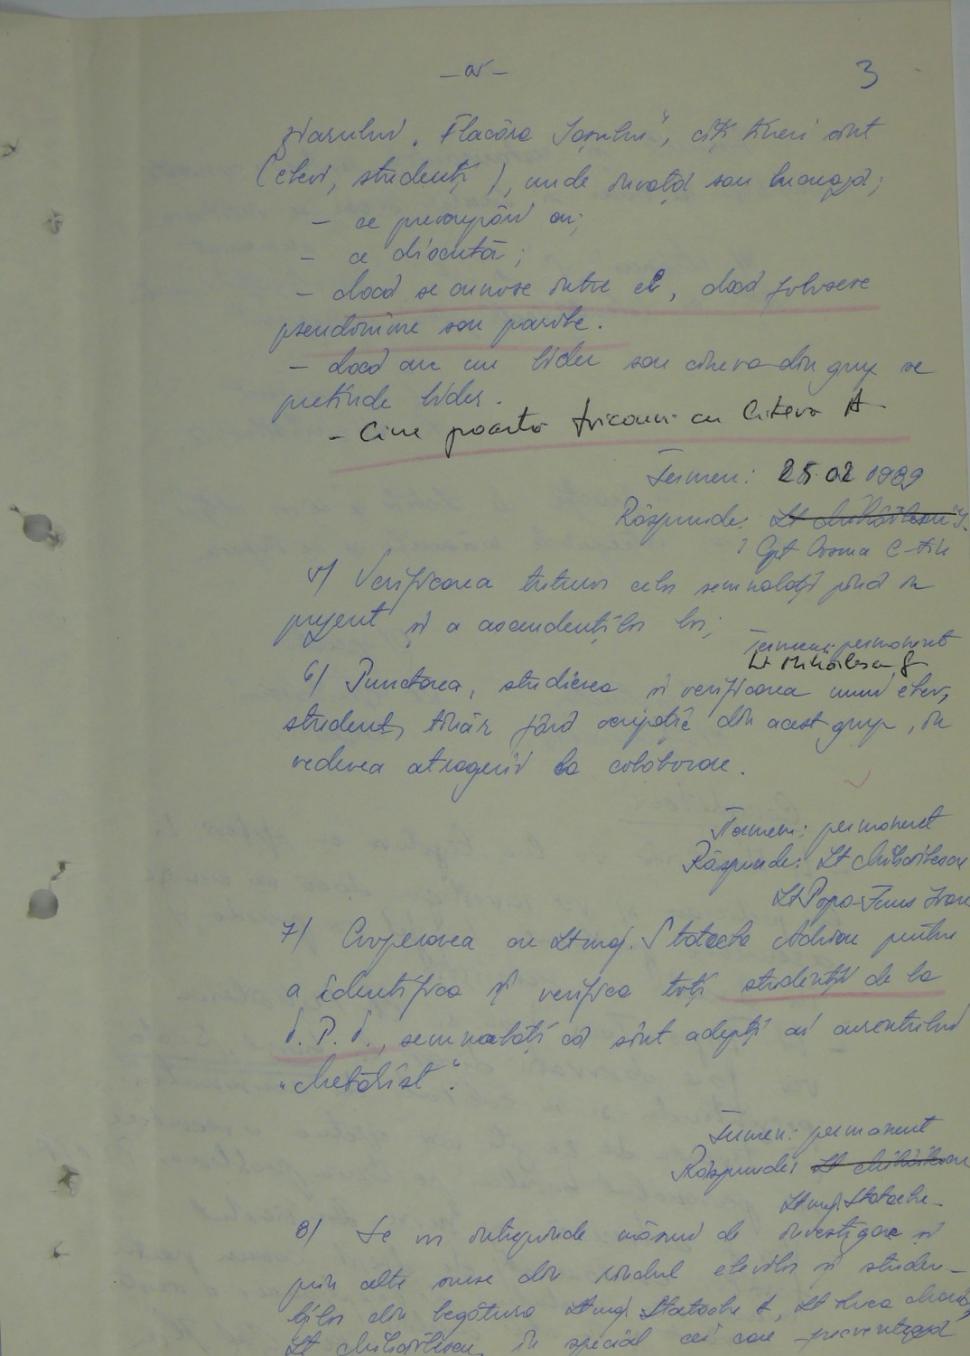 3
ziarului „Flacăra Iașului”, cîți tineri sînt
(elevi, studenți), unde învață sau lucrează;
- ce preocupări au;
- ce discută;
- dacă se cunosc între ei, dacă folosesc
pseudonime sau parole.
- dacă au un lider sau cineva din grup se
pretinde lider.
- Cine poartă tricouri cu litera A
Termen: 25.02 1989
Răspunde: Lt Mihăilescu
Cpt Cozma C-tin
5/ Verificarea tuturor celor semnalați pînă în
prezent și a ascendenților lor;
Termen: permanent
Lt Mihăilescu
6/ Punctarea, studierea și verificarea unui elev,
student, tînăr fără ocupație din acest grup, în
vederea atragerii la colaborare.
Termen: permanent
Răspunde: Lt Mihăilescu
Lt Popa
7/ Cooperarea cu Lt maj. Statache Adrian pentru
a identifica și verifica toți studenții de la
semnalați că sînt adepți ai curentului
„Metalist”.
Termen: permanent
Răspunde: Lt Mihăilescu
Lt maj. Statache
8/ Se vor întreprinde măsuri de investigare și
prin alte surse din rîndul elevilor și studen-
ților din legătura Lt maj. Statache A, Lt
Lt Mihăilescu, în special cei care